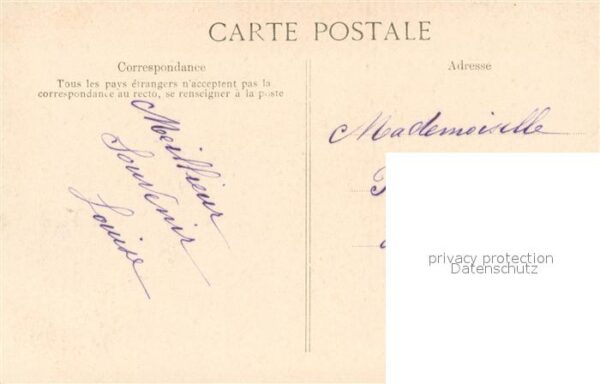 CARTE POSTALE
Correspondance
Tous les pays étrangers n'acceptent pas la
correspondance au recto, se renseigner à la poste
Meillieur
Souvenir
Louise
Adresse
Mademoiselle
privacy protection
Datenschutz